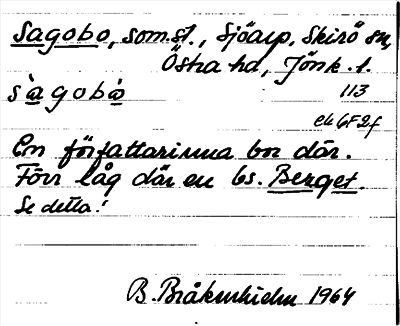 Sagobo, som.st., Sjöarp, Skirö sn,
Östra hd, Jönk. l.
sàgobò 113
ek 6F2f
En författarinna bor där.
Förr låg där en bs. Berget.
Se detta!
B. Bråkenhielm 1964